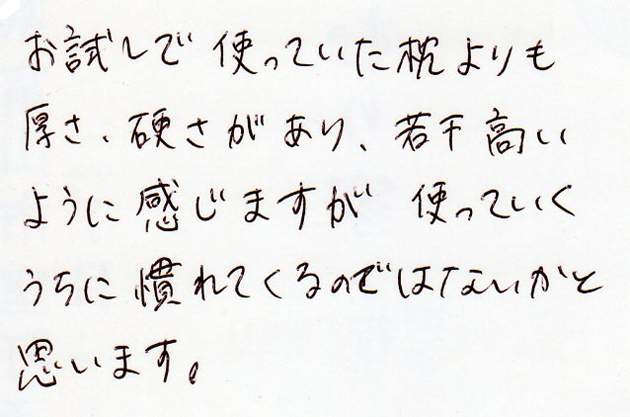 お試しで使っていた枕よりも
厚さ、硬さがあり、若干高い
ように感じますが使っていく
うちに慣れてくるのではないかと
思います。